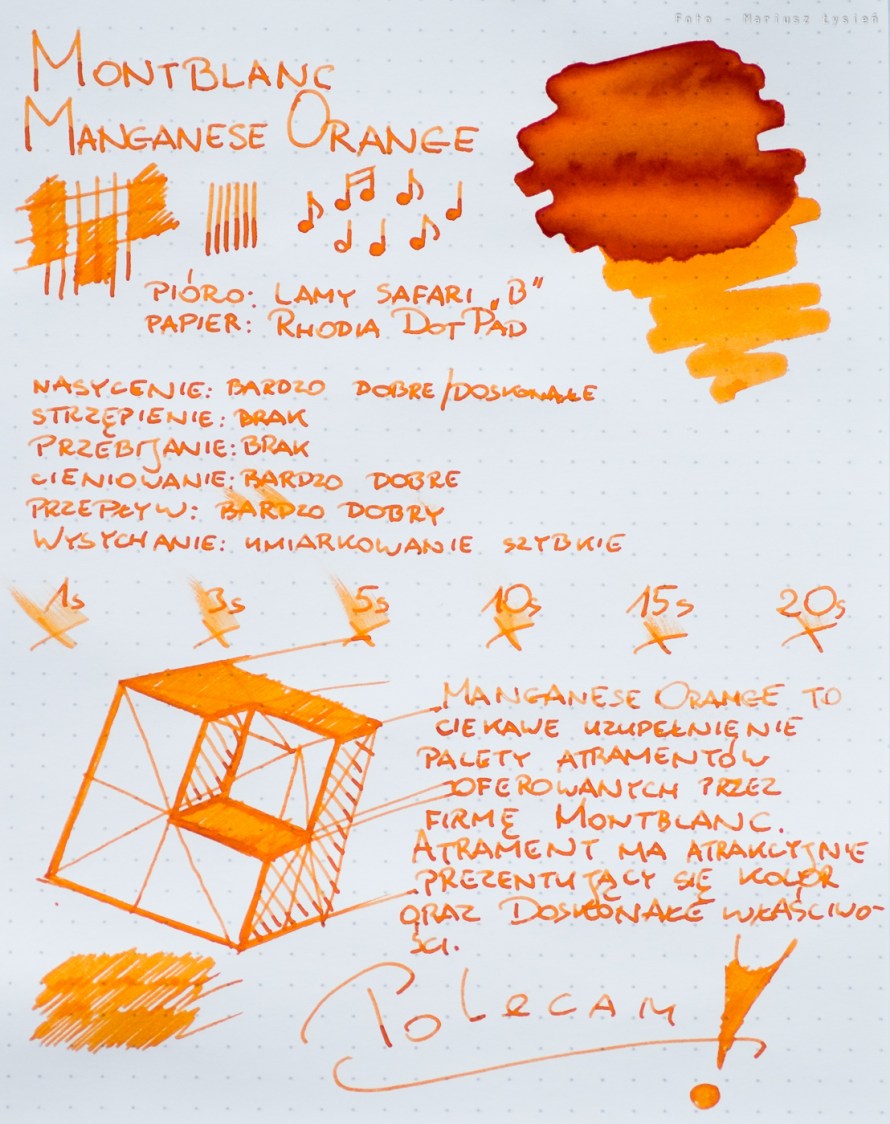 Foto - Mariusz Łysień
MONTBLANC
MANGANESE ORANGE
PIÓRO: LAMY SAFARI „B”
PAPIER: RHODIA DOTPAD
NASYCENIE: BARDZO DOBRE/DOSKONAŁE
STRZĘPIENIE: BRAK
PRZEBIJANIE: BRAK
CIENIOWANIE: BARDZO DOBRE
PRZEPŁYW: BARDZO DOBRY
WYSYCHANIE: UMIARKOWANIE SZYBKIE
1s 3s 5s 10s 15s 20s
MANGANESE ORANGE TO
CIEKAWE UZUPEŁNIENIE
PALETY ATRAMENTÓW
OFEROWANYCH PRZEZ
FIRMĘ MONTBLANC.
ATRAMENT MA ATRAKCYJNIE
PREZENTUJĄCY SIĘ KOLOR
ORAZ DOSKONAŁE WŁAŚCIWO-
ŚCI.
POLECAM!